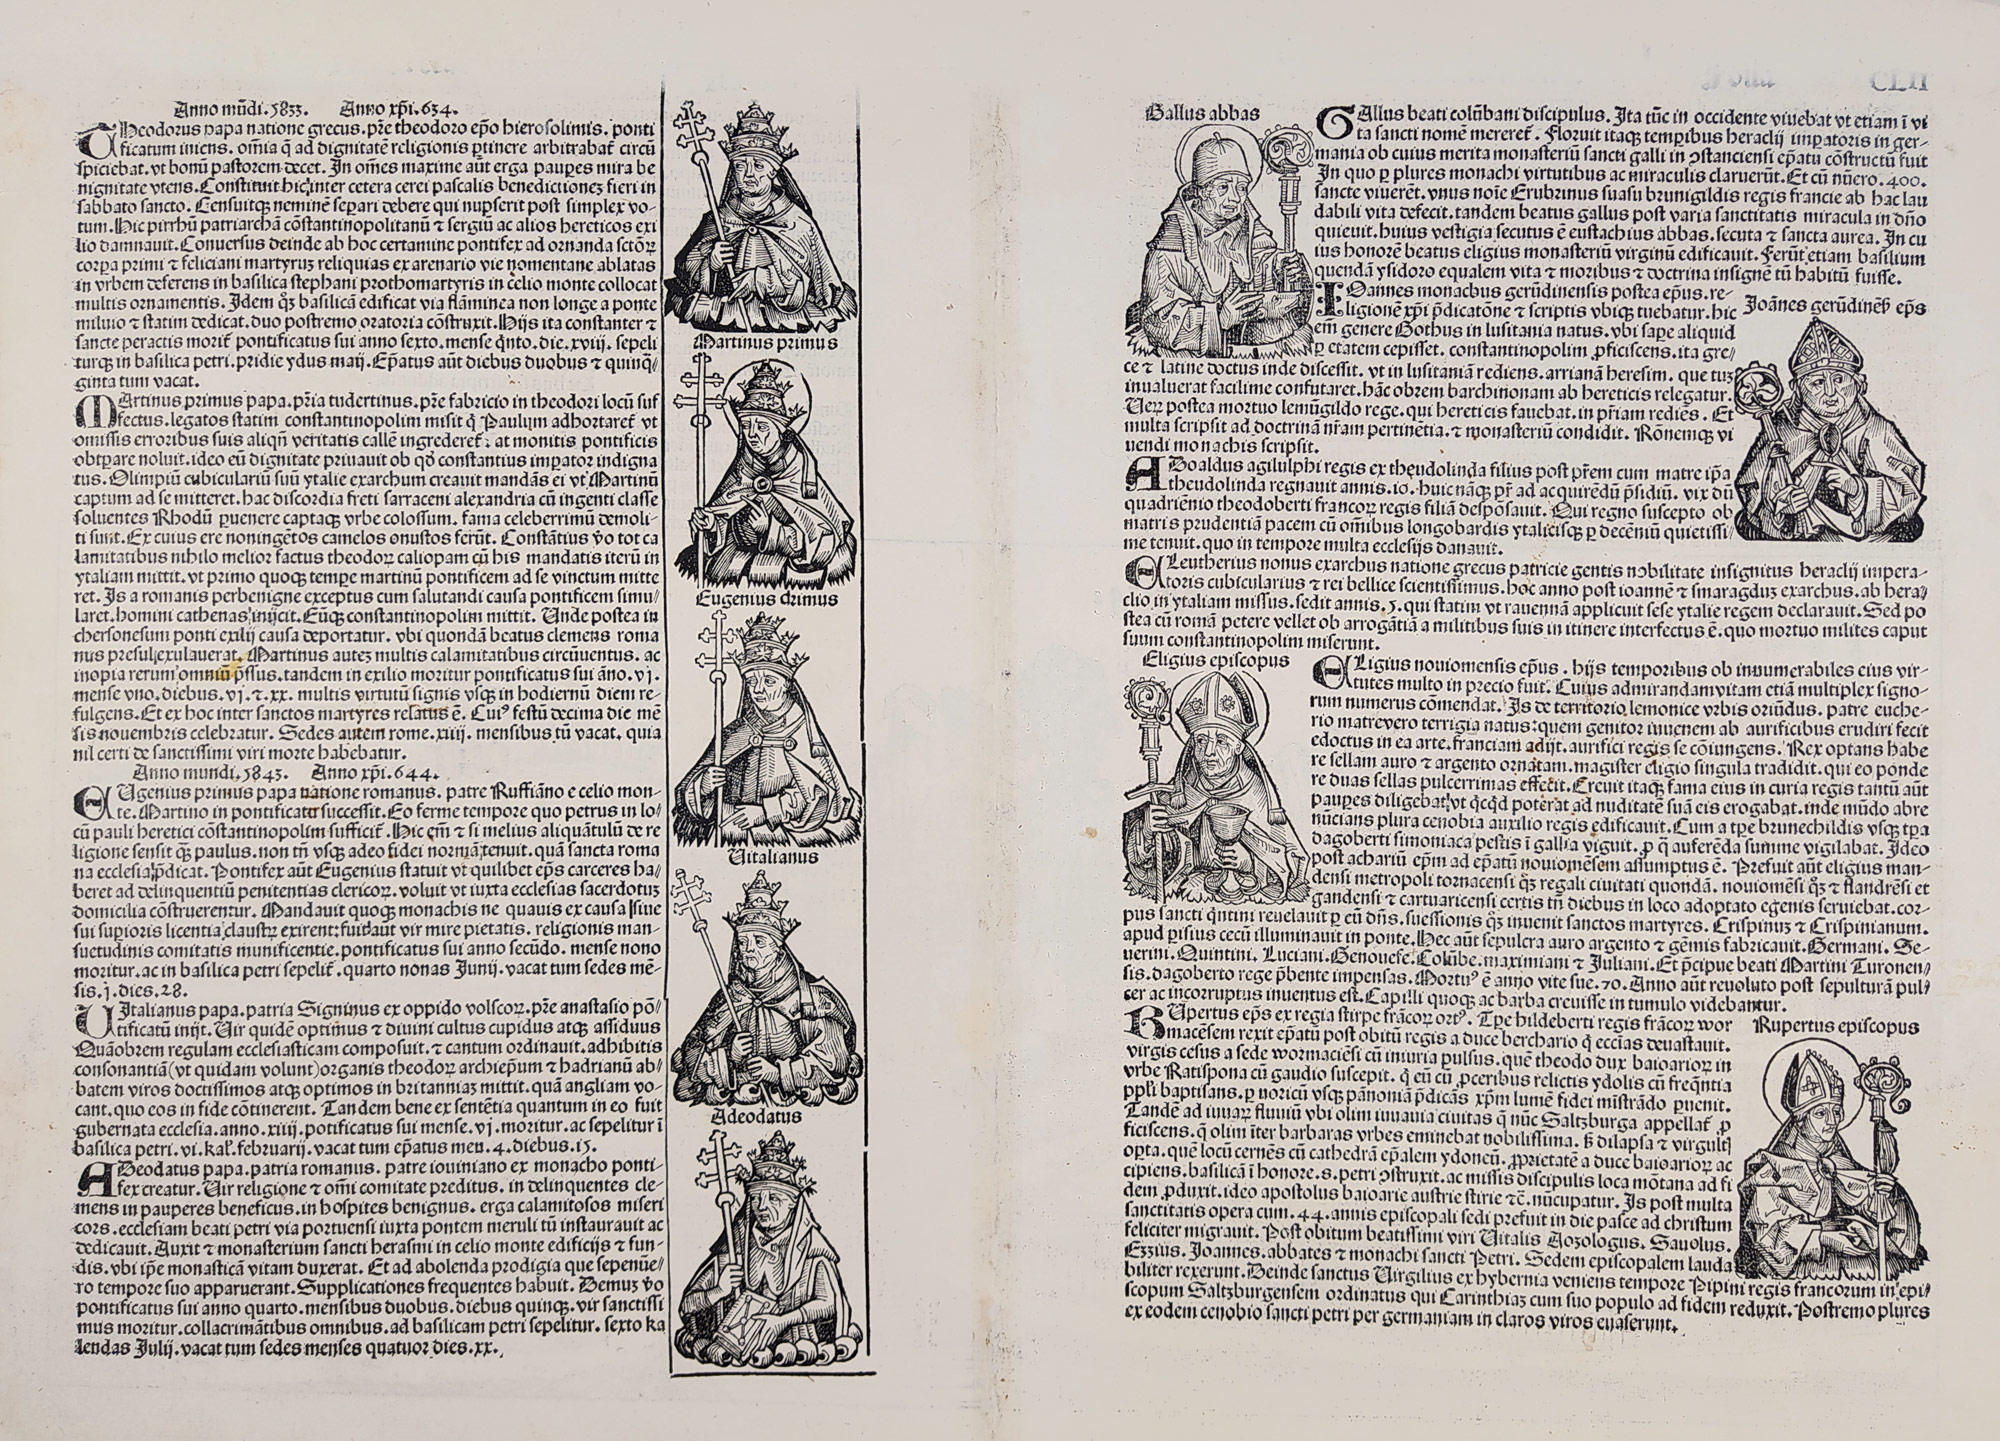 Anno mūdi. 5833. Anno xp̄i. 634.
Theodorus papa natione grecus. p̄re theodoro ep̄o hierosolimis. ponti
ficatum iniens. om̄ia q̄ ad dignitatē religionis ꝑtinere arbitrabat̄ circū
spiciebat. vt bonū pastorem decet. In om̄es maxime aūt erga pauꝑes mira be
nignitate vtens. Constituit hic inter cetera cerei pascalis benedictionez fieri in
sabbato sancto. Censuitqꝫ neminē seꝑari debere qui nupserit post simplex vo-
tum. Hic pirrhū patriarchā cōstantinopolitanū ⁊ sergiū ac alios hereticos exi
lio damnauit. Conuersus deinde ab hoc certamine pontifex ad ornanda sctōꝝ
corꝑa primi ⁊ feliciani martyruꝫ reliquias ex arenario vie nomentane ablatas
in vrbem deferens in basilica stephani prothomartyris in celio monte collocat
multis ornamentis. Idem qꝫ basilicā edificat via flāminea non longe a ponte
miluio ⁊ statim dedicat. duo postremo oratoria cōstruxit. Hijs ita constanter ⁊
sancte peractis morit̄ pontificatus sui anno sexto. mense qnto. die. xviij. sepeli
turqꝫ in basilica petri. pridie ydus maij. Ep̄atus aūt diebus duobus ⁊ quinq̄
ginta tum vacat.
Martinus primus papa. p̄ria tudertinus. p̄re fabricio in theodori locū suf
fectus. legatos statim constantinopolim misit q̄ Paulum adhortaret̄ vt
omissis erroribus suis aliqn̄ veritatis callē ingrederet̄: at monitis pontificis
obtꝑare noluit. ideo eū dignitate priuauit ob qd̄ constantius imꝑator indigna
tus. Olimpiū cubiculariū suū ytalie exarchum creauit mandās ei vt Martinū
captum ad se mitteret. hac discordia freti sarraceni alexandria cū ingenti classe
soluentes Rhodū ꝑuenere captaqꝫ vrbe colossum. fama celeberrimū demoli-
ti sunt. Ex cuius ere noningētos camelos onustos ferūt. Constātius v̄o tot ca
lamitatibus nihilo melior factus theodoꝝ caliopam cū his mandatis iterū in
ytaliam mittit. vt primo quoqꝫ temꝑe martinū pontificem ad se vinctum mitte
ret. Is a romanis perbenigne exceptus cum salutandi causa pontificem simu-
laret. homini cathenas inijcit. Eūqꝫ constantinopolim mittit. Unde postea in
chersonesum ponti exilij causa deportatur. vbi quondā beatus clemens roma
nus presul exulauerat. Martinus autez multis calamitatibus circūuentus. ac
inopia rerum omniū p̄ssus. tandem in exilio moritur pontificatus sui āno. vj.
mense vno. diebus. vj. ⁊. xx. multis virtutū signis vsqꝫ in hodiernū diem re-
fulgens. Et ex hoc inter sanctos martyres relatus ē. Cuiꝰ festū decima die mē
sis nouembris celebratur. Sedes autem rome. xiij. mensibus tū vacat. quia
nil certi de sanctissimi viri morte habebatur.
Anno mundi. 5843. Anno xp̄i. 644.
Eugenius primus papa natione romanus. patre Ruffiāno e celio mon-
te. Martino in pontificatu successit. Eo ferme tempore quo petrus in lo-
cū pauli heretici cōstantinopolim sufficit̄. Hic em̄ ⁊ si melius aliquātulū de re
ligione sensit q̄ꝫ paulus. non tn̄ vsqꝫ adeo fidei normā tenuit. quā sancta roma
na ecclesia p̄dicat. Pontifex aūt Eugenius statuit vt quilibet ep̄s carceres ha-
beret ad delinquentiū penitentias clericoꝝ. voluit vt iuxta ecclesias sacerdotuꝫ
domicilia cōstruerentur. Mandauit quoqꝫ monachis ne quauis ex causa sine
sui suꝑioris licentia claustꝝ exirent: fuit aūt vir mire pietatis. religionis man-
suetudinis comitatis munificentie. pontificatus sui anno secūdo. mense nono
moritur. ac in basilica petri sepelit̄. quarto nonas Junij. vacat tum sedes mē-
sis. j. dies. 28.
Uitalianus papa. patria Signinus ex oppido volscoꝝ. p̄re anastasio pō-
tificatū inijt. Uir quidē optimus ⁊ diuini cultus cupidus atqꝫ assiduus
Quāobrem regulam ecclesiasticam composuit. ⁊ cantum ordinauit. adhibitis
consonantiā (vt quidam volunt) organis theodoꝝ archiep̄um ⁊ hadrianū ab-
batem viros doctissimos atqꝫ optimos in britanniaꝫ mittit. quā angliam vo-
cant. quo eos in fide cōtinerent. Tandem bene ex sentētia quantum in eo fuit
gubernata ecclesia. anno. xiiij. pōtificatus sui mense. vj. moritur. ac sepelitur ī
basilica petri. vi. kal̄. februarij. vacat tum ep̄atus men. 4. diebus. 15.
Adeodatus papa. patria romanus. patre iouiniano ex monacho ponti-
fex creatur. Uir religione ⁊ om̄i comitate preditus. in delinquentes cle-
mens in pauperes beneficus. in hospites benignus. erga calamitosos miseri
cors. ecclesiam beati petri via portuensi iuxta pontem meruli tū instaurauit ac
dedicauit. Auxit ⁊ monasterium sancti herasmi in celio monte edificijs ⁊ fun-
dis. vbi ip̄e monasticā vitam duxerat. Et ad abolenda prodigia que sepenue-
ro tempore suo apparuerant. Supplicationes frequentes habuit. Demuꝫ v̄o
pontificatus sui anno quarto. mensibus duobus. diebus quinqꝫ. vir sanctissi
mus moritur. collacrimātibus omnibus. ad basilicam petri sepelitur. sexto ka
lendas Julij. vacat tum sedes menses quatuor dies. xx.
Martinus primus
Eugenius primus
Uitalianus
Adeodatus
CLII
Gallus abbas
Gallus beati colūbani discipulus. Ita tūc in occidente viuebat vt etiam ī vi
ta sancti nomē mereret̄. Floruit itaqꝫ tempibus heraclij imꝑatoris in ger-
mania ob cuius merita monasteriū sancti galli in ↄstanciensi ep̄atu cōstructū fuit
In quo ꝑ plures monachi virtutibus ac miraculis claruerūt. Et cū nūero. 400.
sancte viuerēt. vnus noīe Erubrinus suasu brunigildis regis francie ab hac lau
dabili vita defecit. tandem beatus gallus post varia sanctitatis miracula in dn̄o
quieuit. huius vestigia secutus ē eustachius abbas. secuta ⁊ sancta aurea. In cu
ius honorē beatus eligius monasteriū virginū edificauit. Ferūt etiam basilium
quendā ysidoro equalem vita ⁊ moribus ⁊ doctrina insignē tū habitū fuisse.
Joānes gerūdineñ eps
Ioannes monachus gerūdinensis postea ep̄us. re-
ligionē xp̄i p̄dicatōne ⁊ scriptis vbiqꝫ tuebatur. hic
em̄ genere Gothus in lusitania natus. vbi saꝑe aliquid
ꝑ etatem cepisset. constantinopolim ꝓficiscens. ita gre-
ce ⁊ latine doctus inde discessit. vt in lusitaniā rediens. arrianā heresim. que tuꝫ
inualuerat facilime confutaret. hāc obrem barchinonam ab hereticis relegatur.
Ueꝝ postea mortuo lemūgildo rege. qui hereticis fauebat. in p̄riam rediēs. Et
multa scripsit ad doctrinā nr̄am pertinētia. ⁊ monasteriū condidit. Rōnemqꝫ vi
uendi monachis scripsit.
Adoaldus agilulphi regis ex theudolinda filius post pr̄em cum matre ip̄a
theudolinda regnauit annis. 10. huic nāqꝫ pr̄ ad acquirēdū p̄sidiū. vix dū
quadriēnio theodoberti francoꝝ regis filiā despōsauit. Qui regno suscepto ob
matris prudentiā pacem cū om̄ibus longobardis ytalicisqꝫ ꝑ decēniū quietissi-
me tenuit. quo in tempore multa ecclesijs donauit.
Eleutherius nonus exarchus natione grecus patricie gentis nobilitate insignitus heraclij impera-
toris cubicularius ⁊ rei bellice scientissimus. hoc anno post ioannē ⁊ smaragduꝫ exarchus. ab hera-
clio in ytaliam missus. sedit annis. 5. qui statim vt rauennā applicuit sese ytalie regem declarauit. Sed po
stea cū romā petere vellet ob arrogātiā a militibus suis in itinere interfectus ē. quo mortuo milites caput
suum constantinopolim miserunt.
Eligius episcopus
Eligius nouiomensis ep̄us. hijs temporibus ob innumerabiles eius vir-
tutes multo in precio fuit. Cuius admirandam vitam etiā multiplex signo-
rum numerus comendat. Is de territorio lemonice vrbis oriūdus. patre euche-
rio matrevero terrigia natus: quem genitor iuuenem ab aurificibus erudiri fecit
edoctus in ea arte. franciam adijt. aurifici regis se cōiungens. Rex optans habe
re sellam auro ⁊ argento ornatam. magister eligio singula tradidit. qui eo ponde
re duas sellas pulcerrimas effecit. Creuit itaqꝫ fama eius in curia regis tantū aūt
pauꝑes diligebat vt qcqd poterat ad nuditatē suā eis erogabat. inde mūdo abre
nūcians plura cenobia auxilio regis edificauit. Cum a tꝑe brunechildis vsqꝫ tꝑa
dagoberti simoniaca pestis ī gallia viguit. ꝑ q̄ auferēda summe vigilabat. Ideo
post achariū ep̄m ad ep̄atū nouiomēsem assumptus ē. Prefuit aūt eligius man-
densi metropoli tornacensi qꝫ regali ciuitati quondā. nouiomēsi qꝫ ⁊ flandrēsi et
gandensi ⁊ cartuaricensi certis tn̄ diebus in loco adoptato egenis seruiebat. cor-
pus sancti qntini reuelauit ꝑ eū dn̄s. suessionis qꝫ inuenit sanctos martyres. Crispinuꝫ ⁊ Crispinianum.
apud ꝑisius cecū illuminauit in ponte. Hec aūt sepulcra auro argento ⁊ gēmis fabricauit. Germani. Se-
uerini. Quintini. Luciani. Genouefe. Colūbe. maximiani ⁊ Juliani. Et p̄cipue beati Martini Turonen-
sis. dagoberto rege p̄bente impensas. Mortuꝰ ē anno vite sue. 70. Anno aūt reuoluto post sepulturā pul-
cer ac incorruptus inuentus est. Capilli quoqꝫ ac barba creuisse in tumulo videbantur.
Rupertus episcopus
Rupertus ep̄s ex regia stirpe frācoꝝ ortꝰ. Tꝑe hildeberti regis frācoꝝ wor
macēsem rexit ep̄atū post obitū regis a duce berchario q̄ ecc̄ias deuastauit.
virgis cesus a sede wormaciēsi cū iniuria pulsus. quē theodo dux baioarioꝝ in
vrbe Ratispona cū gaudio suscepit. q̄ eū cū ꝓceribus relictis ydolis cū freq̄ntia
pp̄li baptisans. ꝑ noricū vsqꝫ panoniā p̄dicās xp̄m lumē fidei mistrādo ꝑuenit.
Tandē ad iuuaꝝ fluuiū vbi olim iuuauia ciuitas q̄ nūc Saltzburga appellat̄ ꝓ
ficiscens. q̄ olim īter barbaras vrbes eminebat nobilissima. ſꝫ dilapsa ⁊ virgultꝭ
oꝑta. quē locū cernēs cū cathedrā ep̄alem ydoneū. ꝓprietatē a duce baioarioꝝ ac
cipiens. basilicā ī honore. s. petri ↄstruxit. ac missis discipulis loca mōtana ad fi
dem ꝓduxit. ideo apostolus baioarie austrie stirie ⁊c̄. nūcupatur. Is post multa
sanctitatis opera cum. 44. annis episcopali sedi prefuit in die pasce ad christum
feliciter migrauit. Post obitum beatissimi viri Uitalis Aozologus. Sauolus.
Ezzius. Joannes. abbates ⁊ monachi sancti Petri. Sedem episcopalem lauda
biliter rexerunt. Deinde sanctus Uirgilius ex hybernia veniens tempore Pipini regis francorum in epi-
scopum Saltzburgensem ordinatus qui Carinthiaꝫ cum suo populo ad fidem reduxit. Postremo plures
ex eodem cenobio sancti petri per germaniam in claros viros euaserunt.